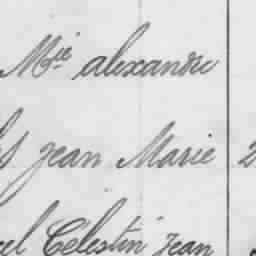 Mie alexandre
jean Marie 2
Célestin jean